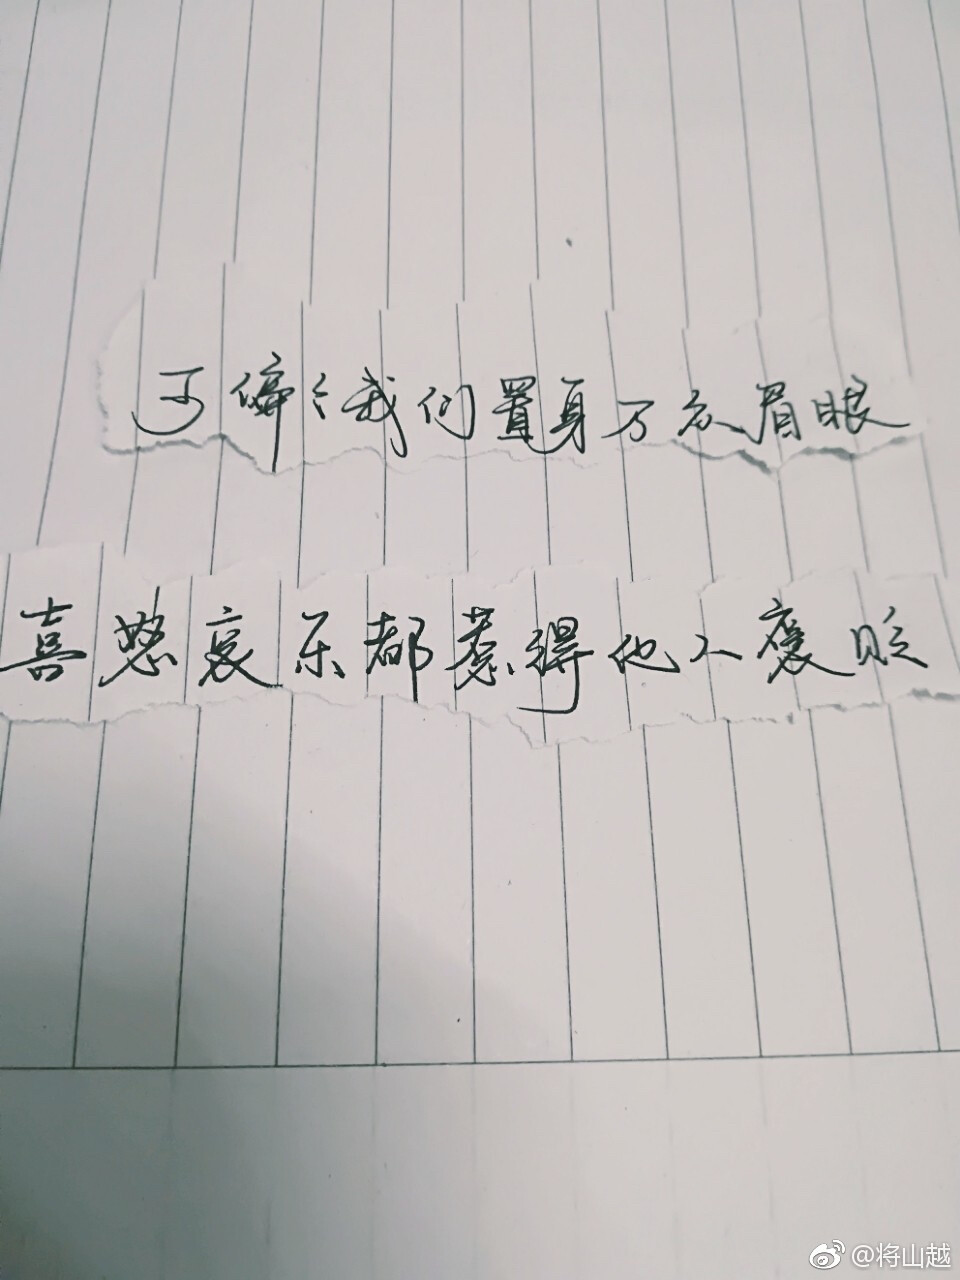 可偏偏我们置身万众眉眼
喜怒哀乐都惹得他人褒贬
@将山越